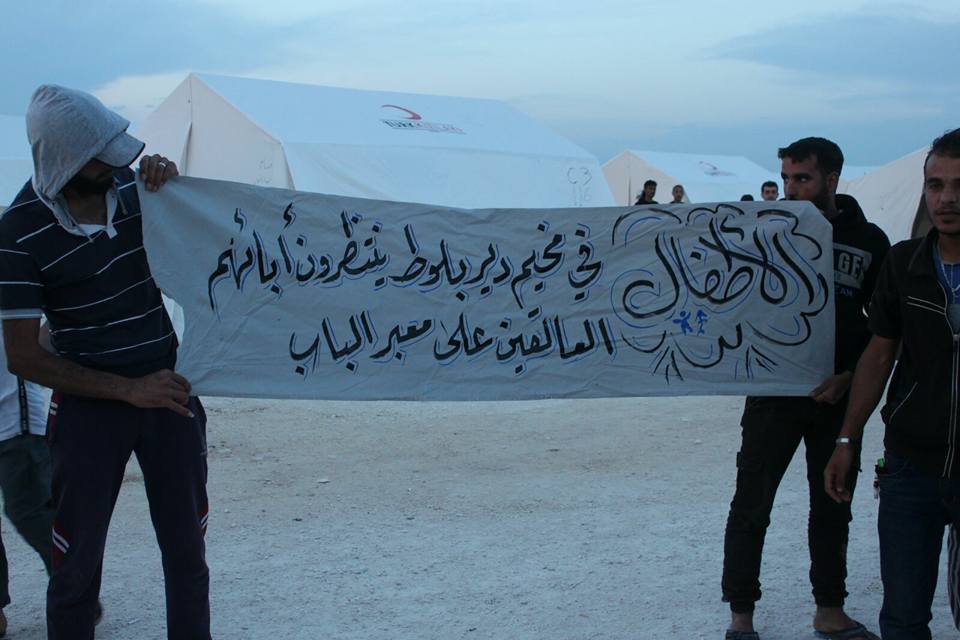 الأطفال
في مخيم دير بلوط ينتظرون أبائهم
العالقين على معبر الباب